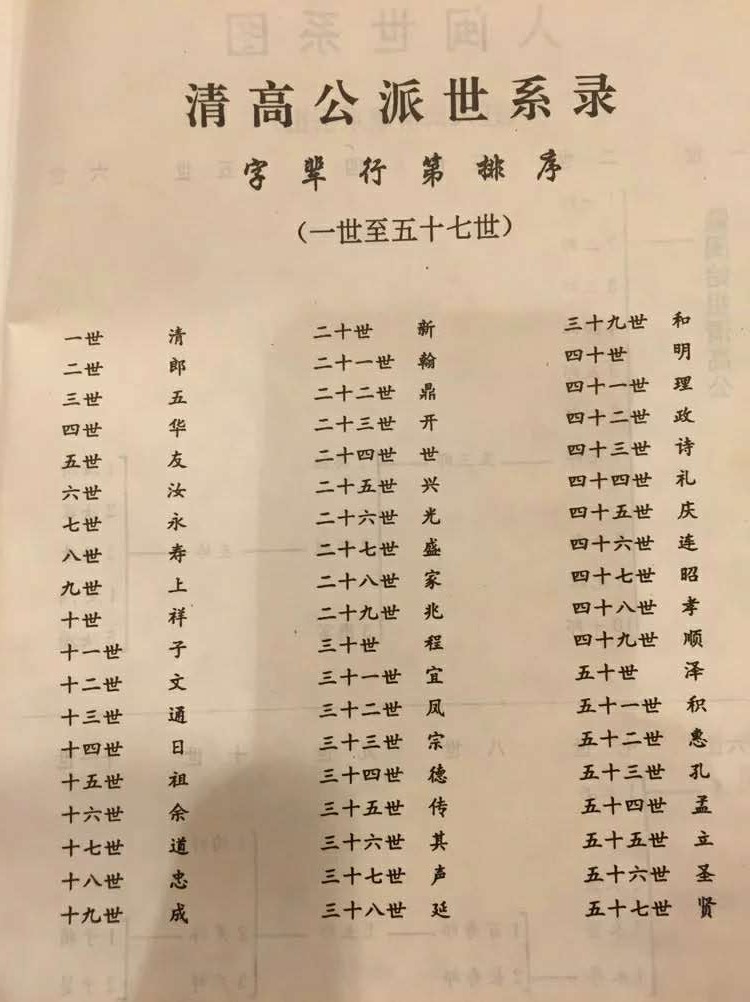 清高公派世系录
字辈行第排序
（一世至五十七世）
一世 清
二世 郎
三世 五
四世 华
五世 友
六世 汝
七世 永
八世 寿
九世 上
十世 祥
十一世 子
十二世 文
十三世 通
十四世 日
十五世 祖
十六世 余
十七世 道
十八世 忠
十九世 成
二十世 新
二十一世 翰
二十二世 鼎
二十三世 开
二十四世 世
二十五世 兴
二十六世 光
二十七世 盛
二十八世 家
二十九世 兆
三十世 程
三十一世 宜
三十二世 凤
三十三世 宗
三十四世 德
三十五世 传
三十六世 其
三十七世 声
三十八世 延
三十九世 和
四十世 明
四十一世 理
四十二世 政
四十三世 诗
四十四世 礼
四十五世 庆
四十六世 连
四十七世 昭
四十八世 孝
四十九世 顺
五十世 泽
五十一世 积
五十二世 惠
五十三世 孔
五十四世 孟
五十五世 立
五十六世 圣
五十七世 贤